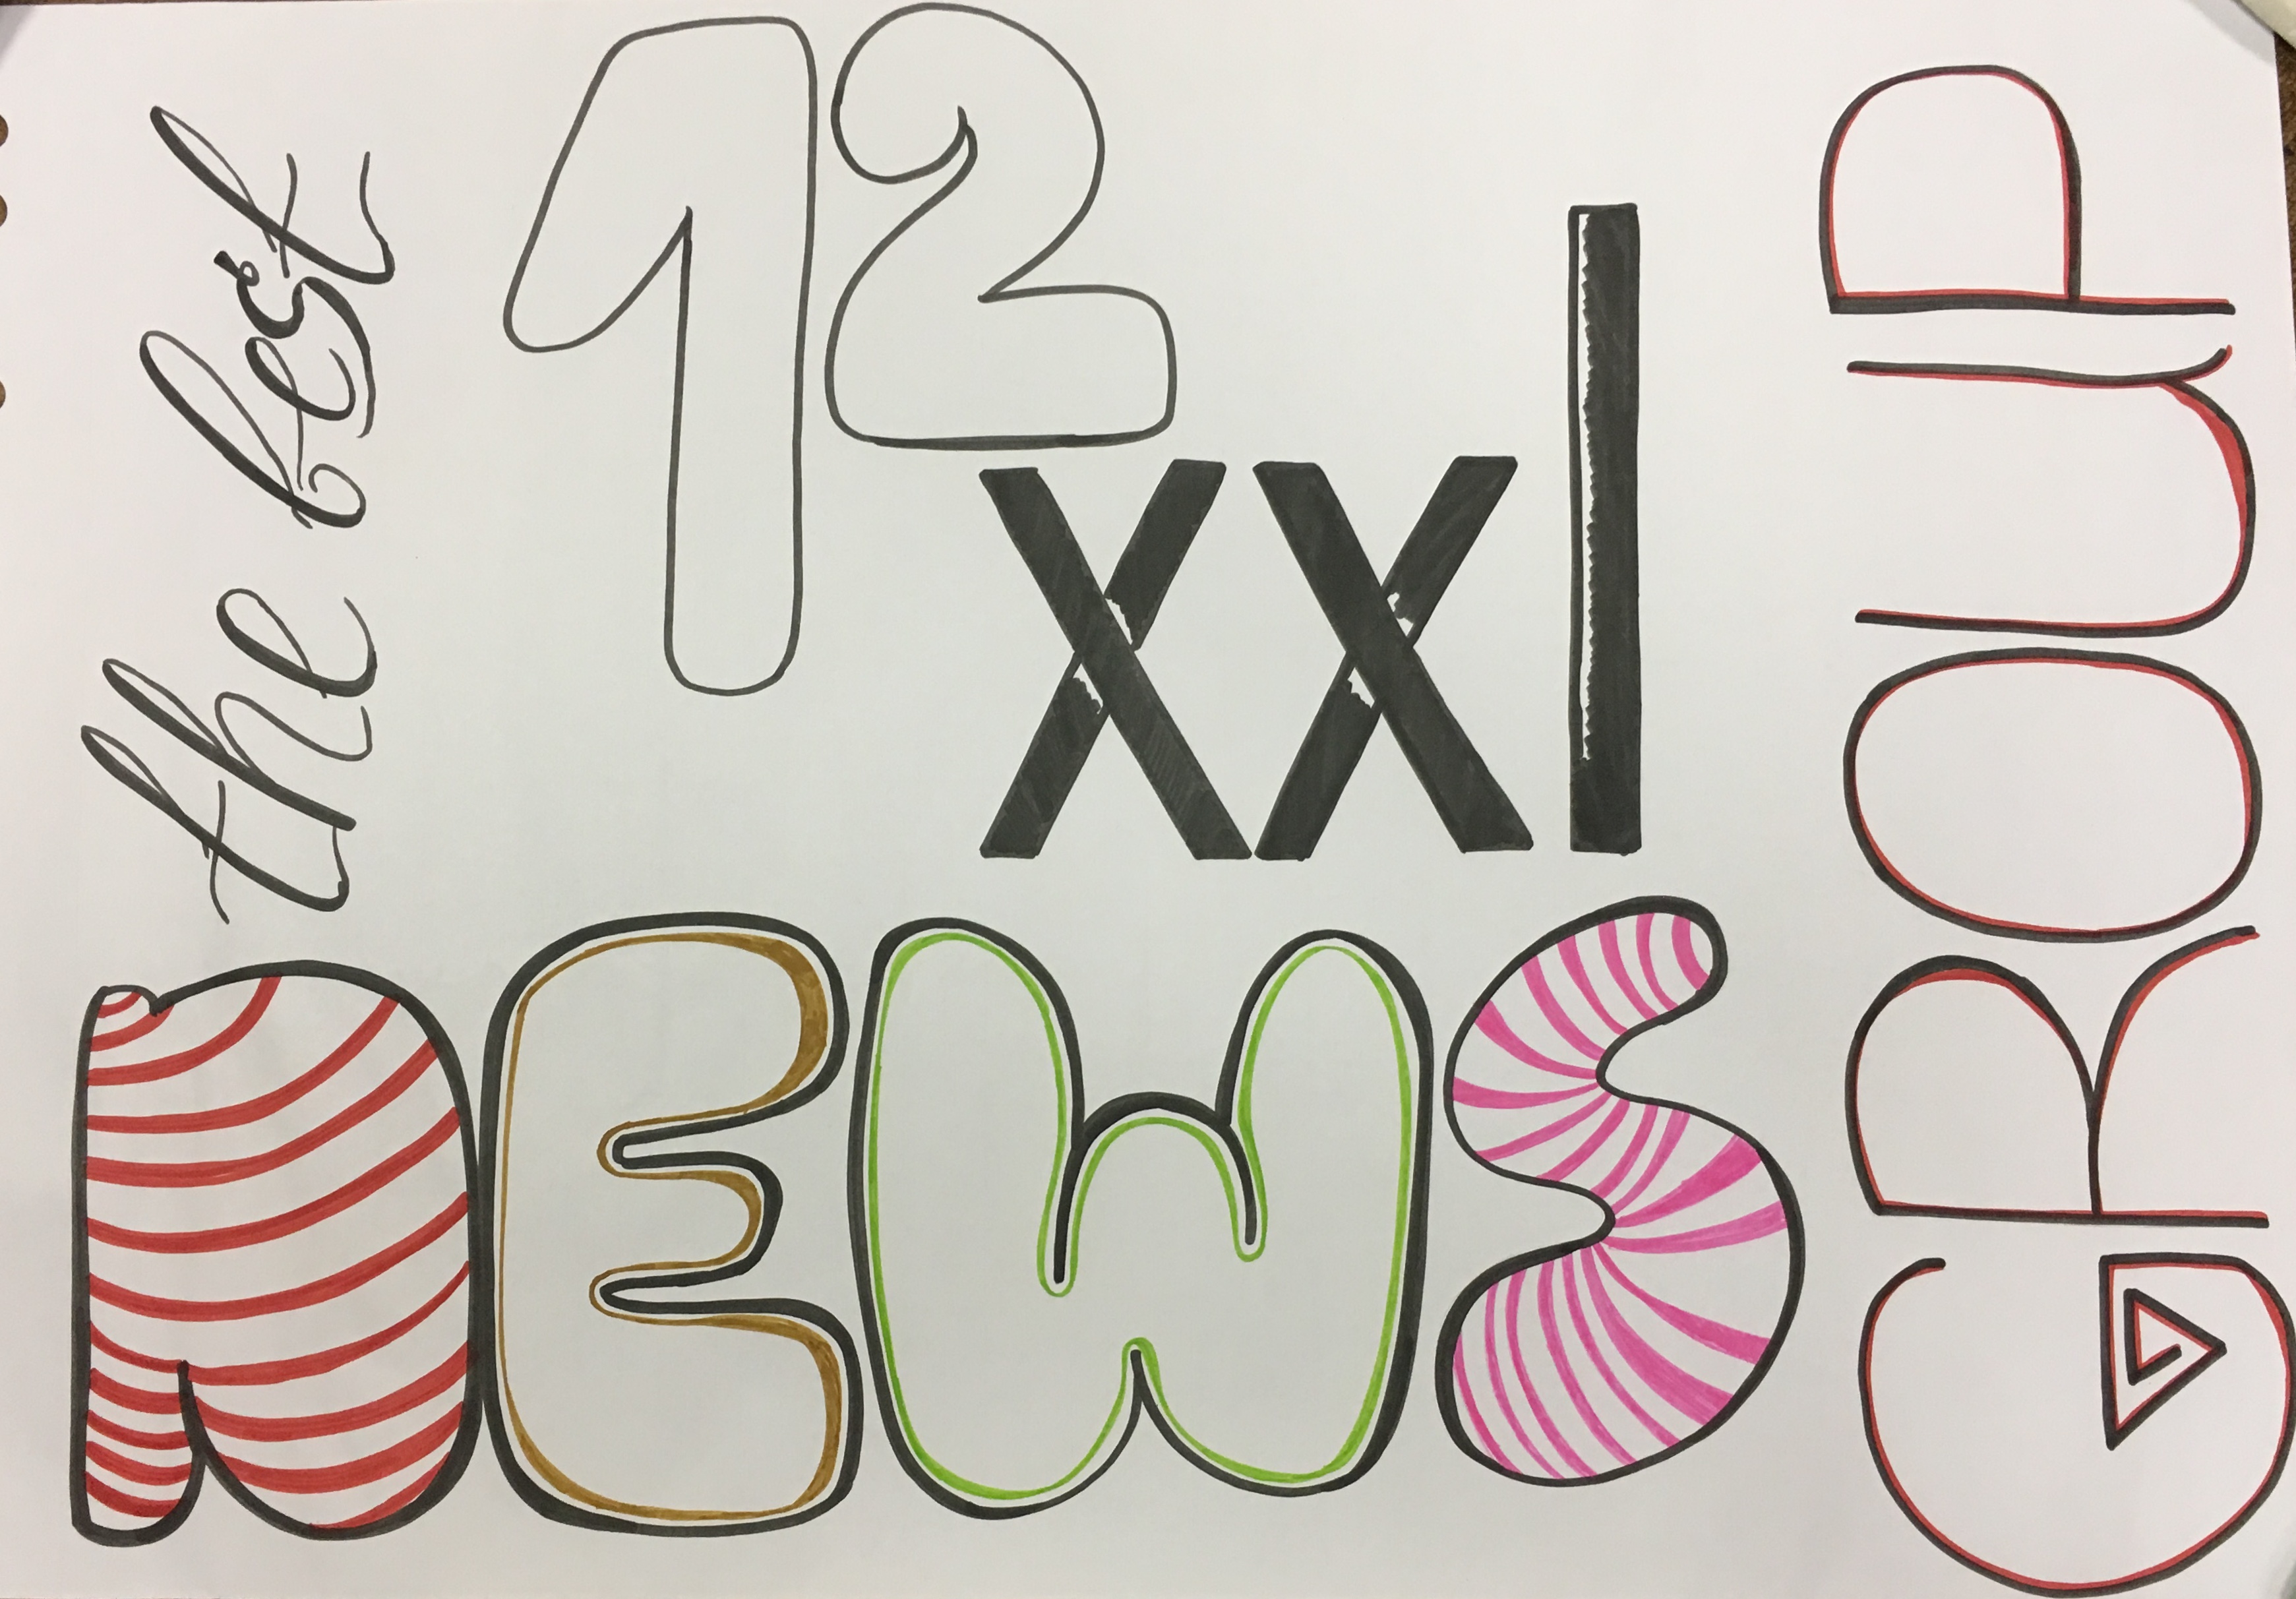 the best
12
xxl
nEWS
GROUP